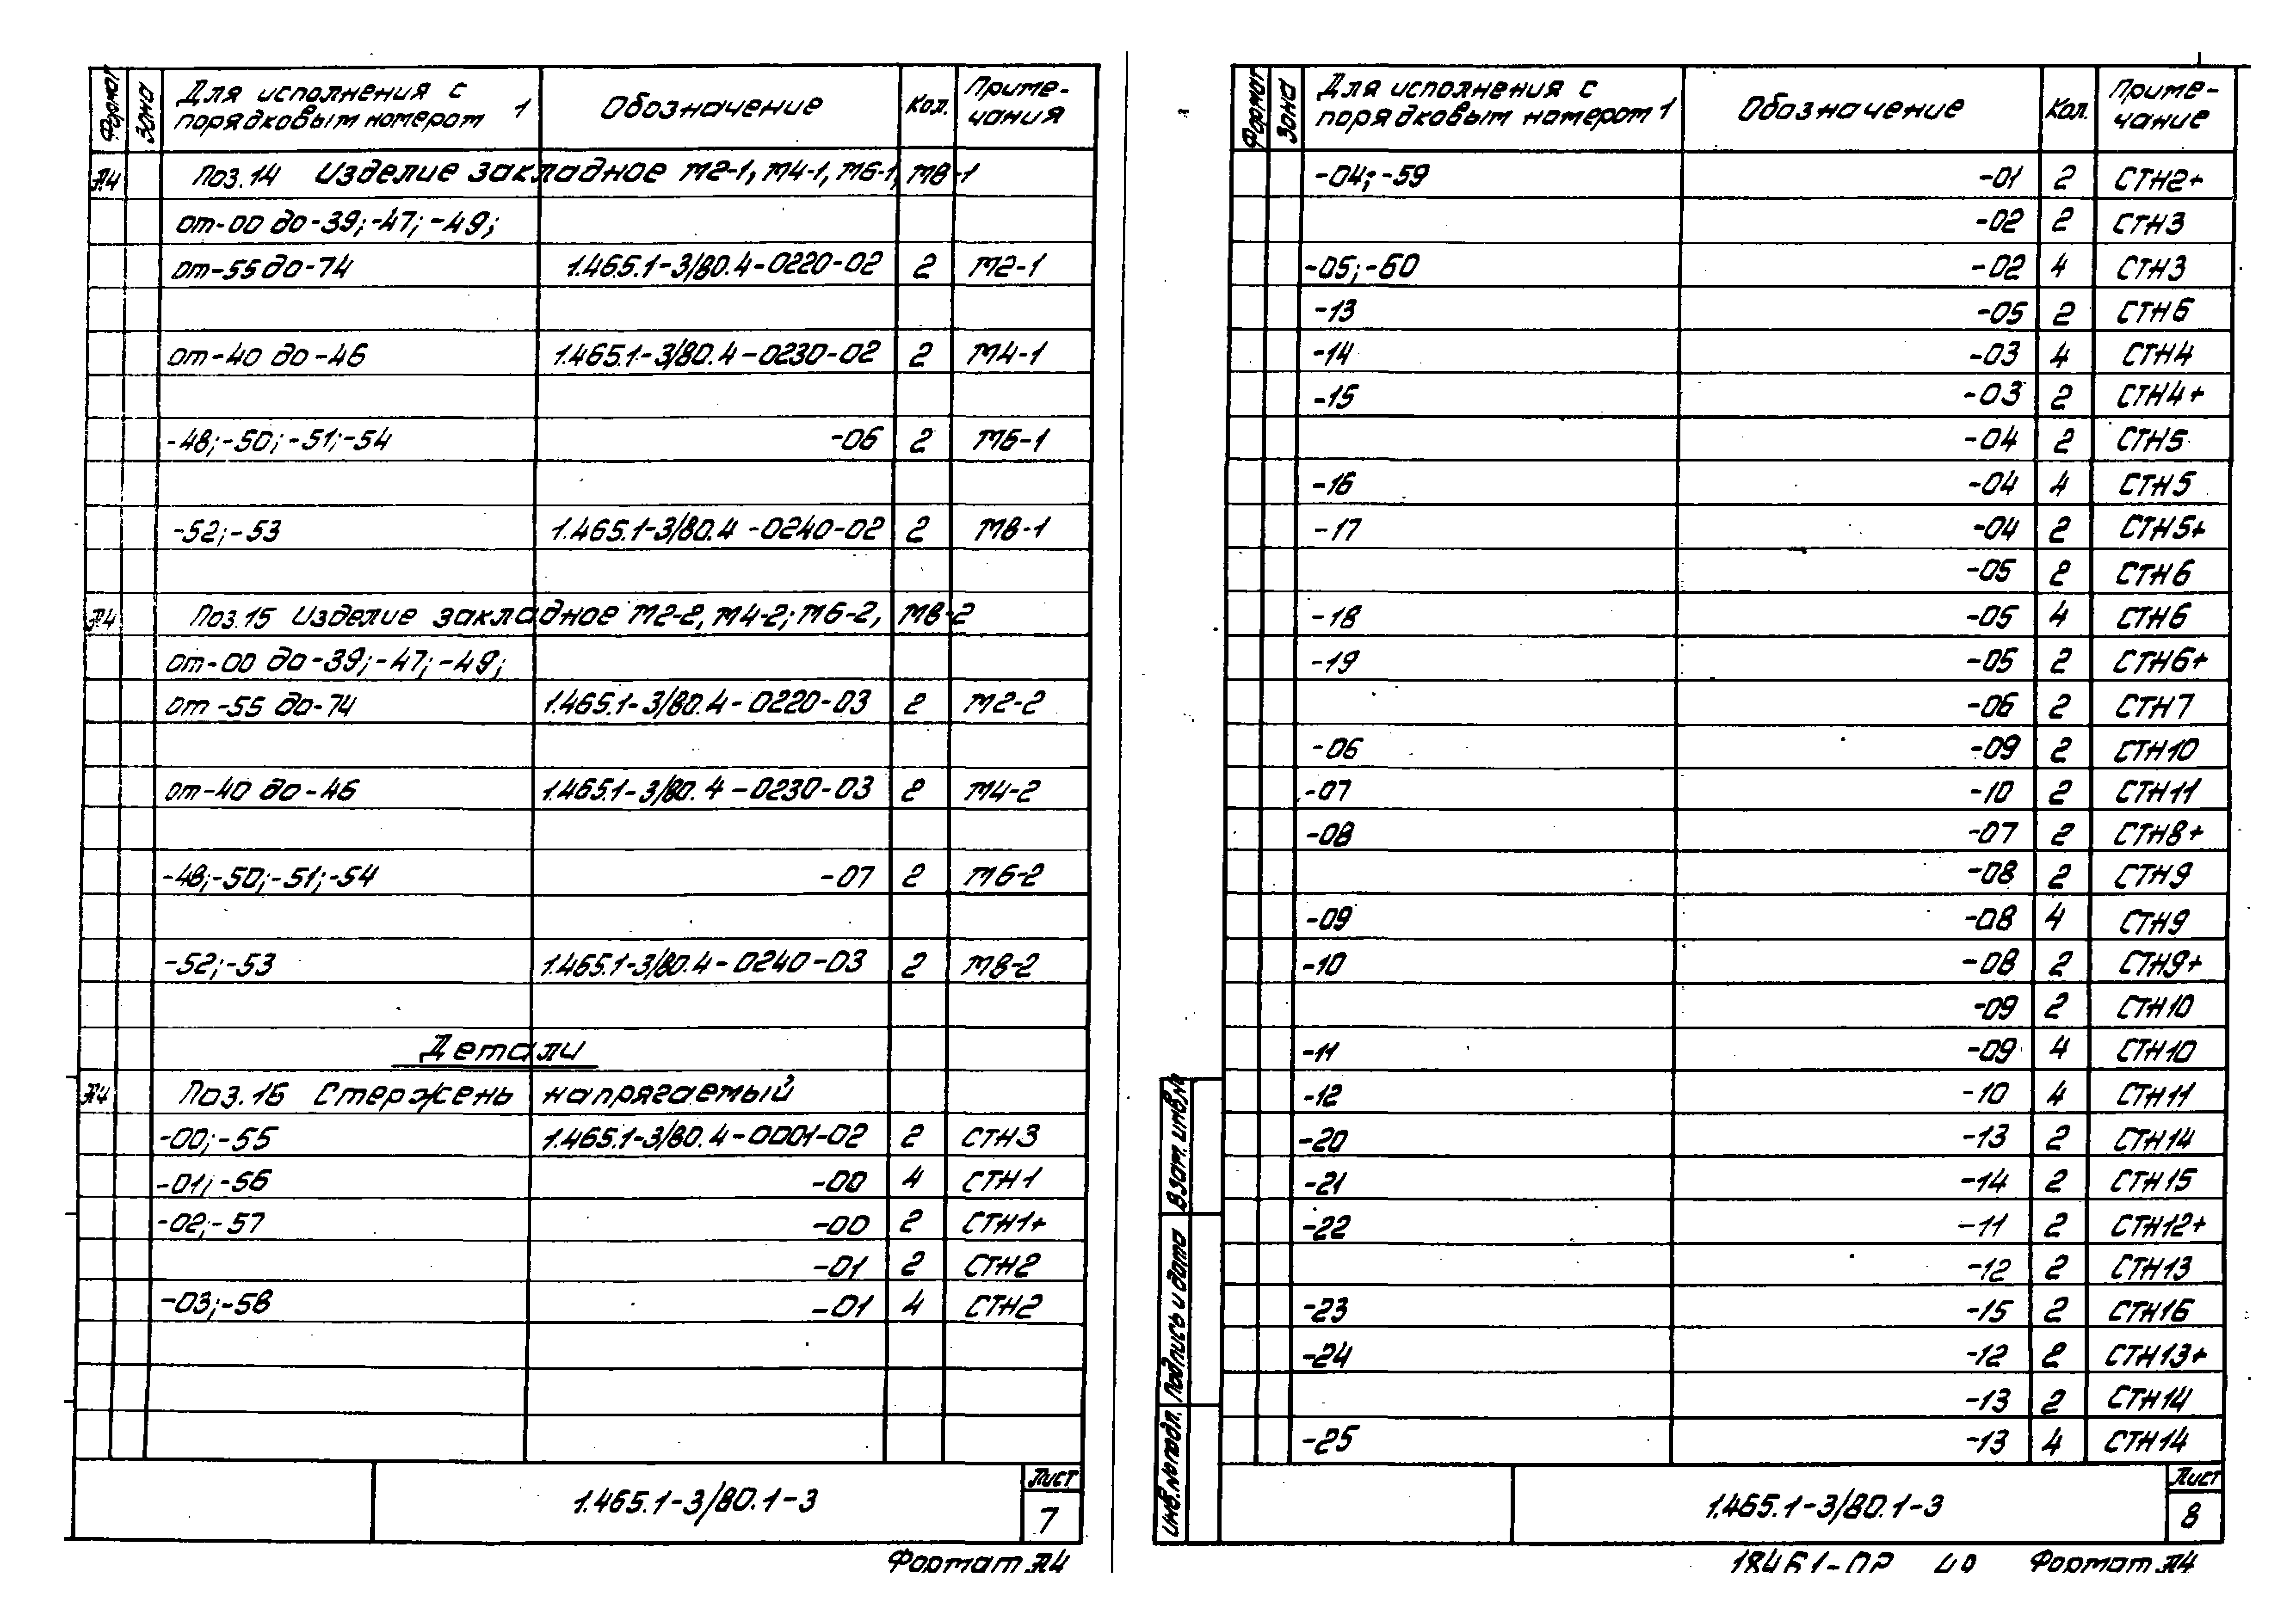 Формат
Зона
Для исполнения с порядковым номером 1 | Обозначение | Кол. | Приме-чания
А4 Поз.14 Изделие закладное М2-1, М4-1, М6-1, М8-1
от-00 до-39; -47; -49;
от-55 до-74 1.465.1-3/80.4-0220-02 2 М2-1
от-40 до-46 1.465.1-3/80.4-0230-02 2 М4-1
-48;-50;-51;-54 -06 2 М6-1
-52;-53 1.465.1-3/80.4-0240-02 2 М8-1
А4 Поз.15 Изделие закладное М2-2, М4-2; М6-2, М8-2
от-00 до-39;-47;-49;
от-55 до-74 1.465.1-3/80.4-0220-03 2 М2-2
от-40 до-46 1.465.1-3/80.4-0230-03 2 М4-2
-48;-50;-51;-54 -07 2 М6-2
-52;-53 1.465.1-3/80.4-0240-03 2 М8-2
Детали
А4 Поз.16 Стержень напрягаемый
-00;-55 1.465.1-3/80.4-0001-02 2 СТН3
-01;-56 -00 4 СТН1
-02;-57 -00 2 СТН1+
-01 2 СТН2
-03;-58 -01 4 СТН2
1.465.1-3/80.1-3
Лист
7
Формат А4
Формат
Зона
Для исполнения с порядковым номером 1 | Обозначение | Кол. | Приме-чание
-04;-59 -01 2 СТН2+
-02 2 СТН3
-05;-60 -02 4 СТН3
-13 -05 2 СТН6
-14 -03 4 СТН4
-15 -03 2 СТН4+
-04 2 СТН5
-16 -04 4 СТН5
-17 -04 2 СТН5+
-05 2 СТН6
-18 -05 4 СТН6
-19 -05 2 СТН6+
-06 2 СТН7
-06 -09 2 СТН10
-07 -10 2 СТН11
-08 -07 2 СТН8+
-08 2 СТН9
-09 -08 4 СТН9
-10 -08 2 СТН9+
-09 2 СТН10
-11 -09 4 СТН10
-12 -10 4 СТН11
-20 -13 2 СТН14
-21 -14 2 СТН15
-22 -11 2 СТН12+
-12 2 СТН13
-23 -15 2 СТН16
-24 -12 2 СТН13+
-13 2 СТН14
-25 -13 4 СТН14
Взам. инв.№
Подпись и дата
Инв.№ подл.
1.465.1-3/80.1-3
Лист
8
Формат А4